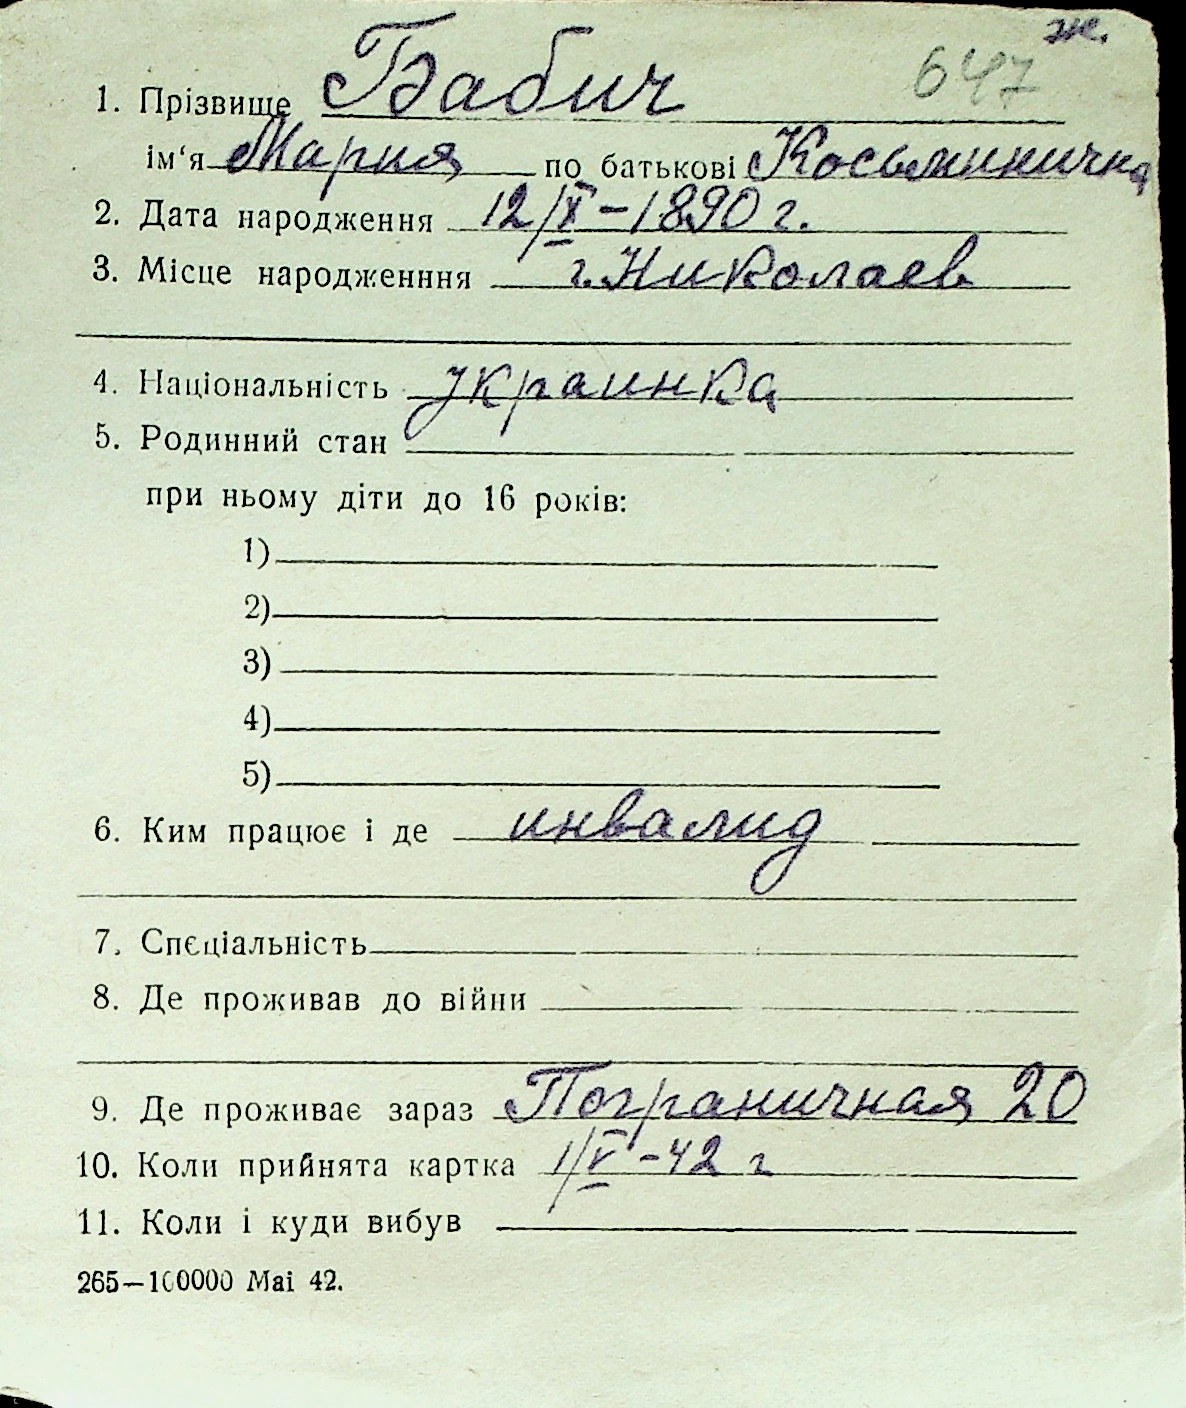 ж.
647
1. Прізвище Бабич
ім‘я Мария по батькові Косьминична
2. Дата народження 12/X – 1890 г.
3. Місце народженння г. Николаев
4. Національність украинка
5. Родинний стан
при ньому діти до 16 років:
1)
2)
3)
4)
5)
6. Ким працює і де инвалид
7. Спєціальність
8. Де проживав до війни
9. Де проживає зараз Пограничная 20
10. Коли прийнята картка 1/V – 42 г
11. Коли і куди вибув
265—100000 Mai 42.